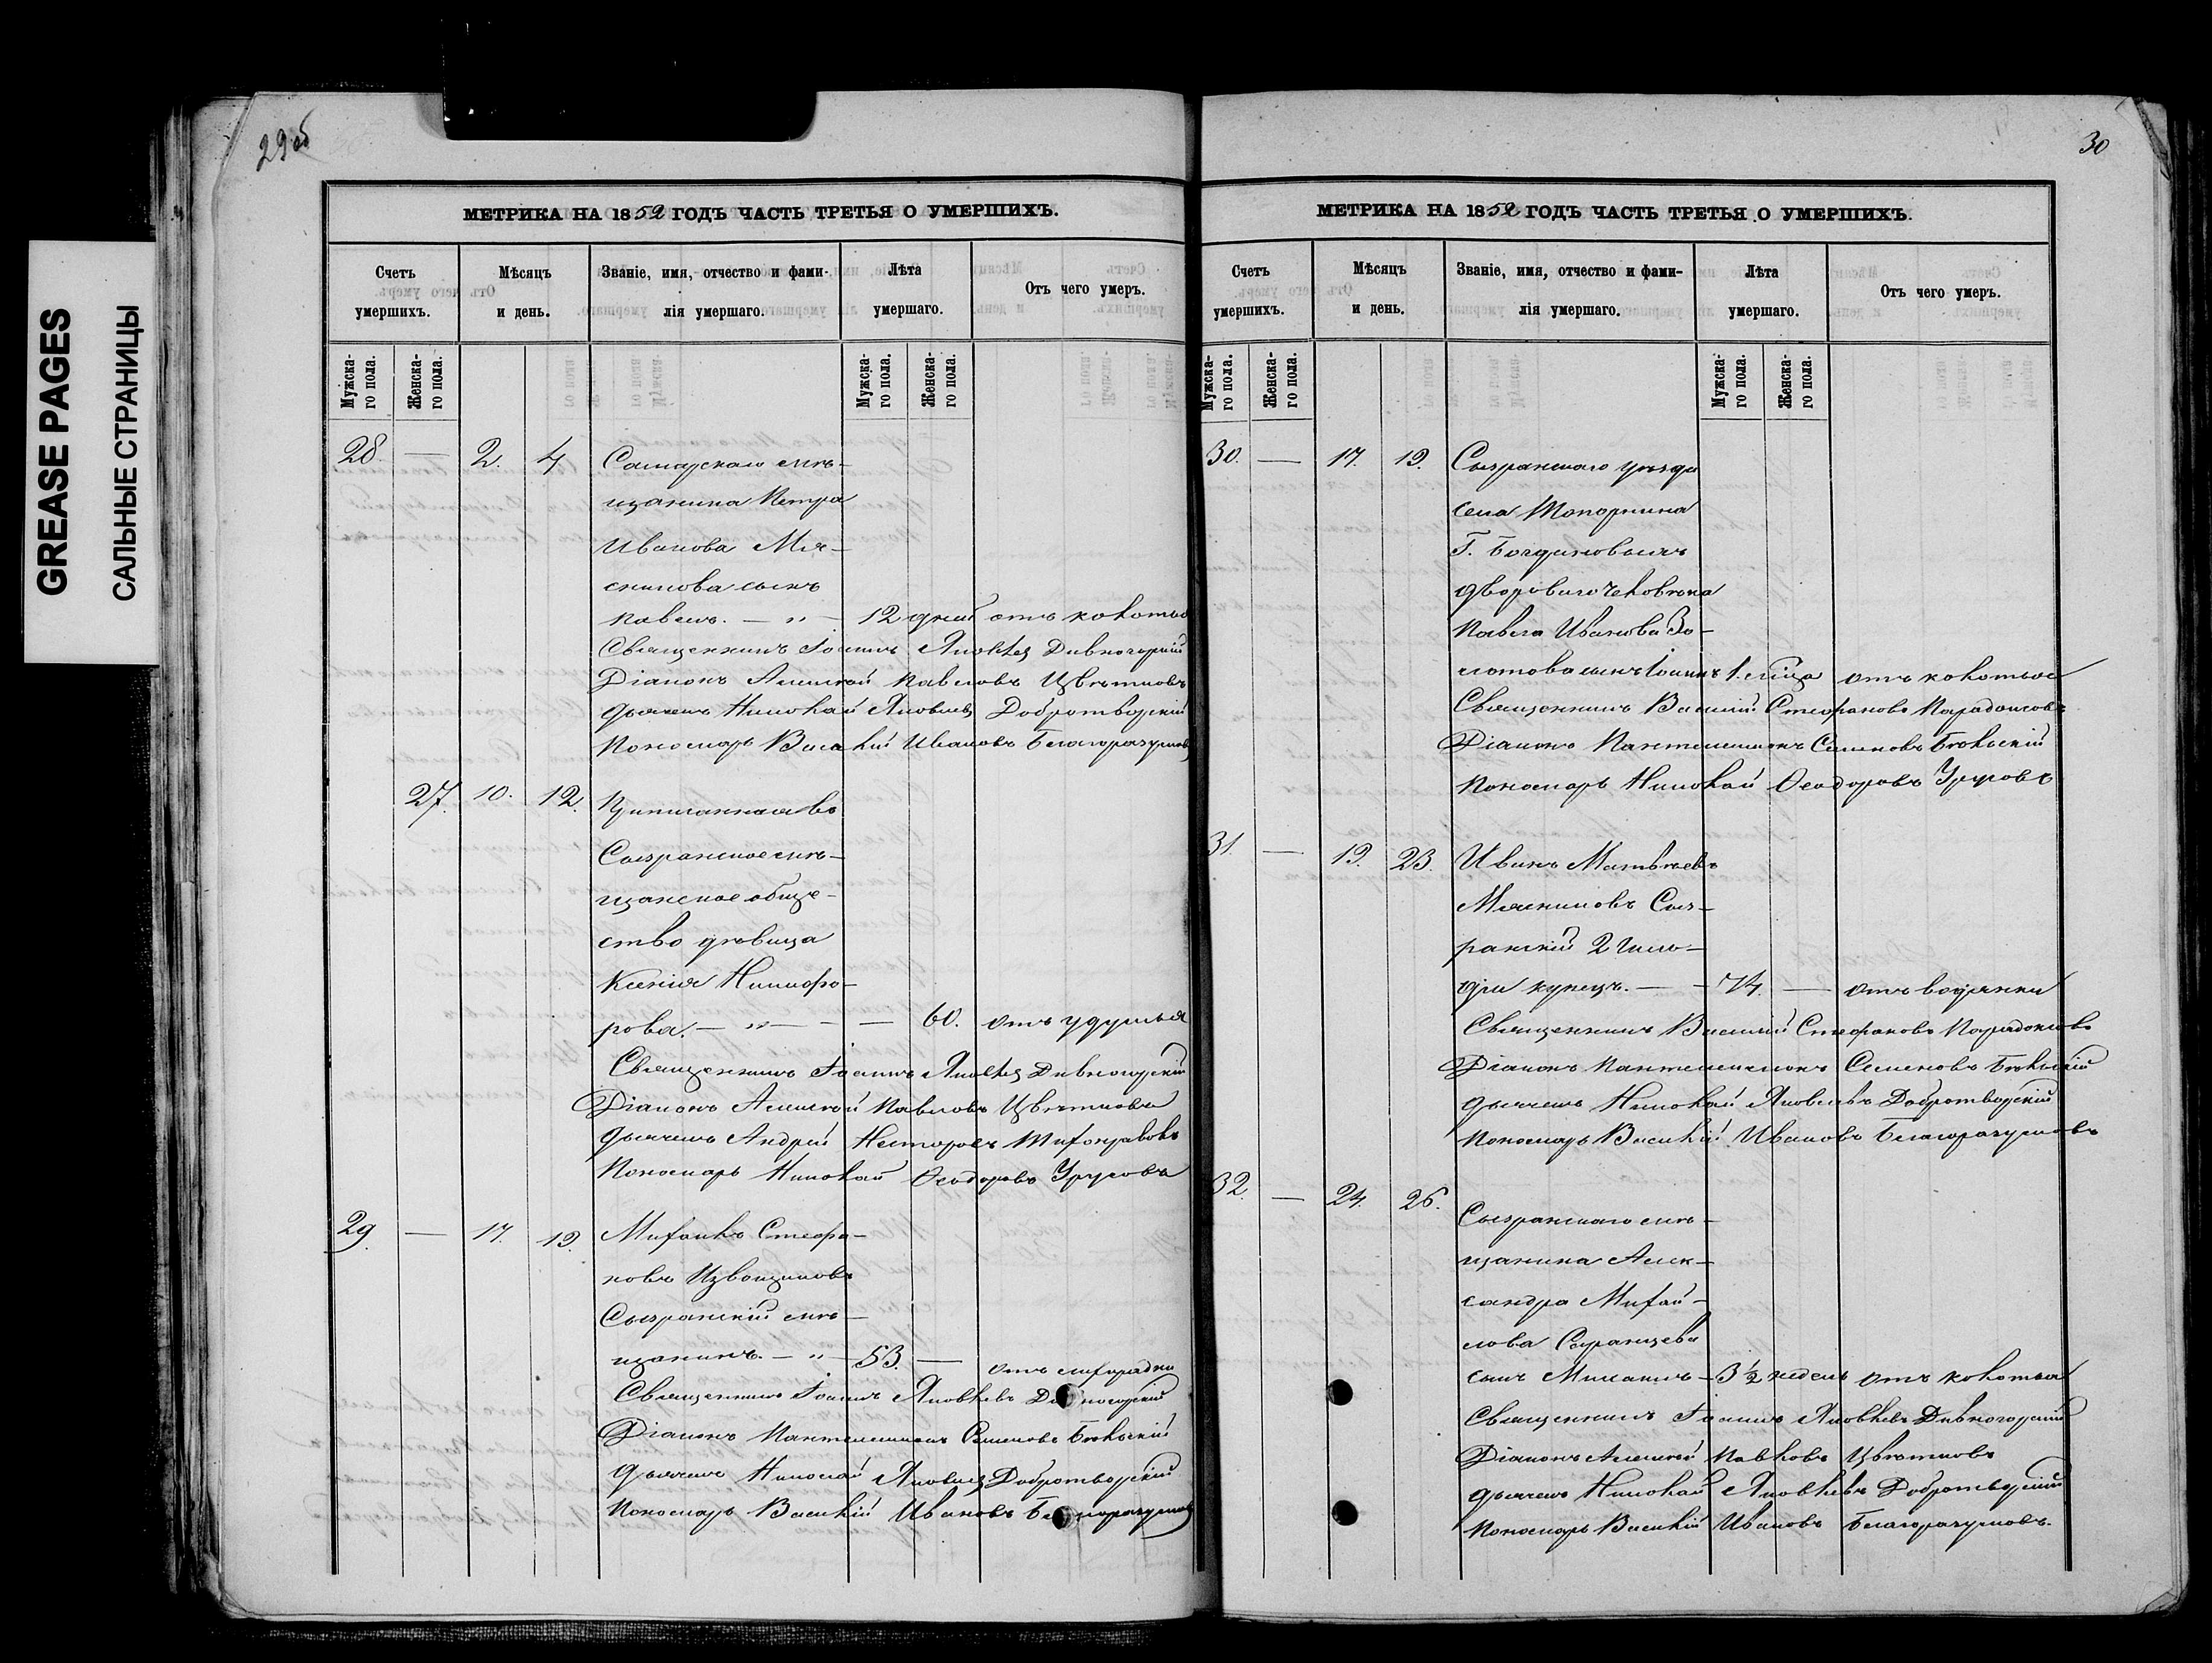 GREASE PAGES
САЛЬНЫЕ СТРАНИЦЫ
29 об
МЕТРИКА НА 1852 ГОДЪ ЧАСТЬ ТРЕТЬЯ О УМЕРШИХЪ.
Счетъ умершихъ.
Мѣсяцъ и день.
Званіе, имя, отчество и фами-
лія умершаго.
Лѣта умершаго.
Отъ чего умеръ.
Мужска-
го пола.
Женска-
го пола.
Мужска-
го пола.
Женска-
го пола.
28. — 2. 4 Самарскаго мѣ-
щанина Петра
Иванова Мя-
сникова сынъ
Павелъ. — " — 12 дней отъ колотья
Священникъ Іоаннъ Яковлев Дивногорскій
Діаконъ Алексѣй Павловъ Цвѣтковъ
Дьячекъ Николай Яковлев Добротворскій
Пономарь Василій Ивановъ Благоразумов
27. 10. 12. Приписанная во
Сызранское мѣ-
щанское обще-
ство дѣвица
Ксенія Никифо-
рова. — " — — 60. отъ удушья
Священникъ Іоаннъ Яковлев Дивногорскій
Діаконъ Алексѣй Павловъ Цвѣтковъ
Дьячекъ Андрей Несторовъ Тихонравовъ
Пономарь Николай Ѳеодоровъ Урусовъ
29. — 17. 19. Михаилъ Стефа-
новъ Извощиковъ
Сызранскій мѣ-
щанинъ. — " — 53. — отъ лихорадки
Священникъ Іоаннъ Яковлевъ Дивногорскій
Діаконъ Пантелеимонъ Семеновъ Бѣльскій
Дьячекъ Николай Яковлев Добротворскій
Пономарь Василій Ивановъ Благоразумов
30
МЕТРИКА НА 1852 ГОДЪ ЧАСТЬ ТРЕТЬЯ О УМЕРШИХЪ.
Счетъ умершихъ.
Мѣсяцъ и день.
Званіе, имя, отчество и фами-
лія умершаго.
Лѣта умершаго.
Отъ чего умеръ.
Мужска-
го пола.
Женска-
го пола.
Мужска-
го пола.
Женска-
го пола.
30. — 17. 19. Сызранскаго уѣзда
села Топорнина
Г. Богдановыхъ
двороваго человѣка
Павла Иванова Зо-
лотова сынъ Іоаннъ 1. мѣсяца отъ колотья
Священникъ Василій Стефановъ Парадоксовъ
Діаконъ Пантелеимонъ Семеновъ Бѣльскій
Пономарь Николай Ѳеодоровъ Урусовъ
31. — 19. 23. Иванъ Матвѣевъ
Мясниковъ Сыз-
ранскій 2 гиль-
діи купецъ. — — 74. — отъ водянки
Священникъ Василій Стефановъ Парадоксовъ
Діаконъ Пантелеимонъ Семеновъ Бѣльскій
Дьячекъ Николай Яковлевъ Добротворскій
Пономарь Василій Ивановъ Благоразумовъ
32. — 24. 26. Сызранскаго мѣ-
щанина Алек-
сандра Михай-
лова Сыранцева
сынъ — 3 ½ недель отъ колотья
Священникъ Іоаннъ Яковлевъ Дивногорскій
Діаконъ Алексѣй Павловъ Цвѣтковъ
Дьячекъ Николай Яковлевъ Добротворскій
Пономарь Василій Ивановъ Благоразумовъ.